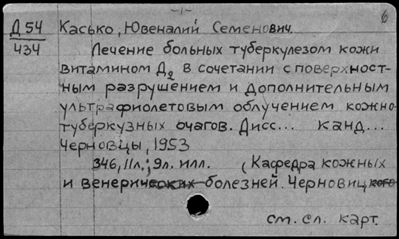 -1-
6
Д 54 Касько, Ювеналий Семенович.
434
Лечение больных туберкулезом кожи
витамином Д2 в сочетании с поверхност-
ным разрушением и дополнительным
ультрафиолетовым облучением кожно-
туберкузных очагов. Дисс... канд...
Черновцы, 1953
346, 11л.; 9л. илл. (Кафедра кожных
и венерических болезней. Черновицкого
см. сл. карт.